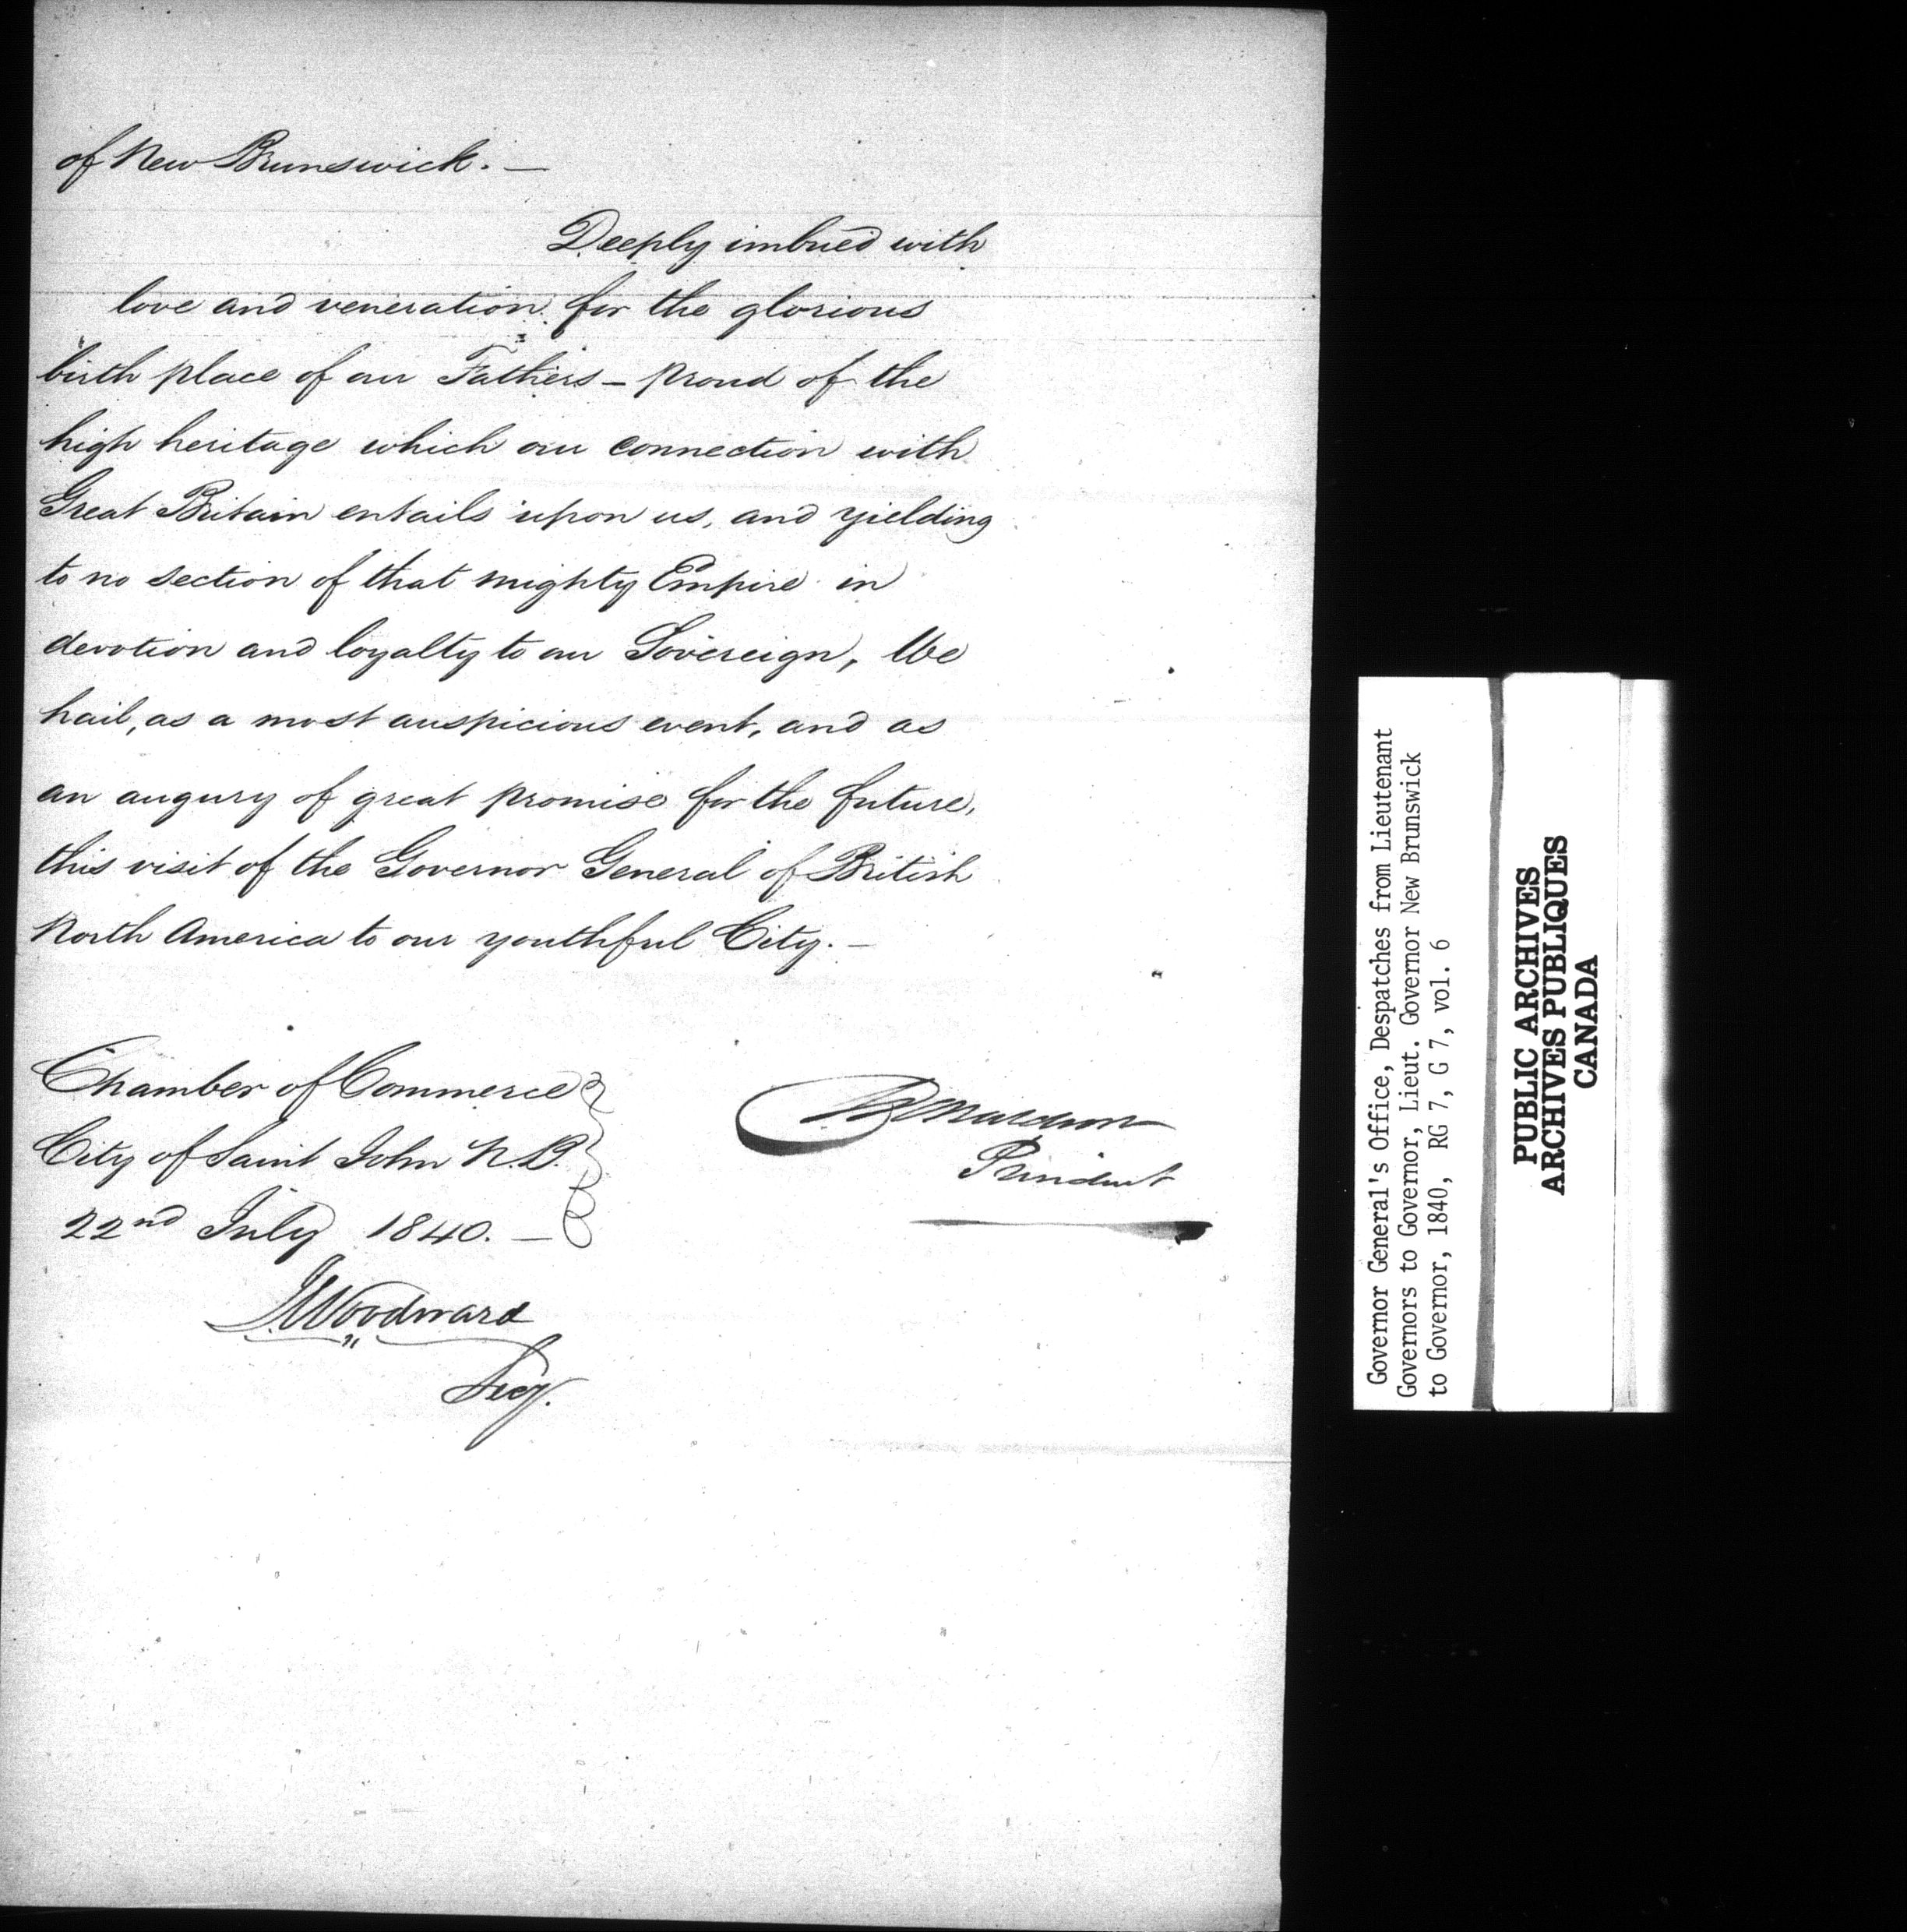 of New Brunswick. —
Deeply imbued with
love and veneration for the glorious
birth place of our Fathers – proud of the
high heritage which our connection with
Great Britain entails upon us, and yielding
to no section of that mighty Empire in
devotion and loyalty to our Sovereign, We
hail, as a most auspicious event, and as
an augury of great promise for the future,
this visit of the Governor General of British
North America to our youthful City. —
Chamber of Commerce
City of Saint John N.B.
22nd July 1840. —
President
J Woodward
Secy.
Governor General's Office, Despatches from Lieutenant
Governors to Governor, Lieut. Governor New Brunswick
to Governor, 1840, RG 7, G 7, vol. 6
PUBLIC ARCHIVES
ARCHIVES PUBLIQUES
CANADA